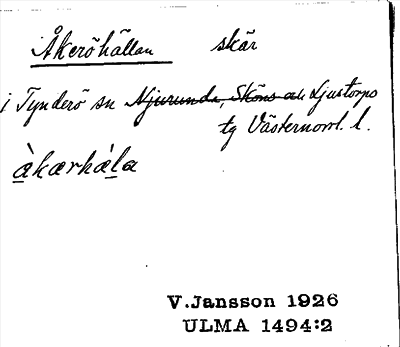 Åkeröhällan skär
i Tynderö sn Njurunda, Sköns och Ljustorps
tg Västernorrl. l.
àkærhàla
V.Jansson 1926
ULMA 1494:2